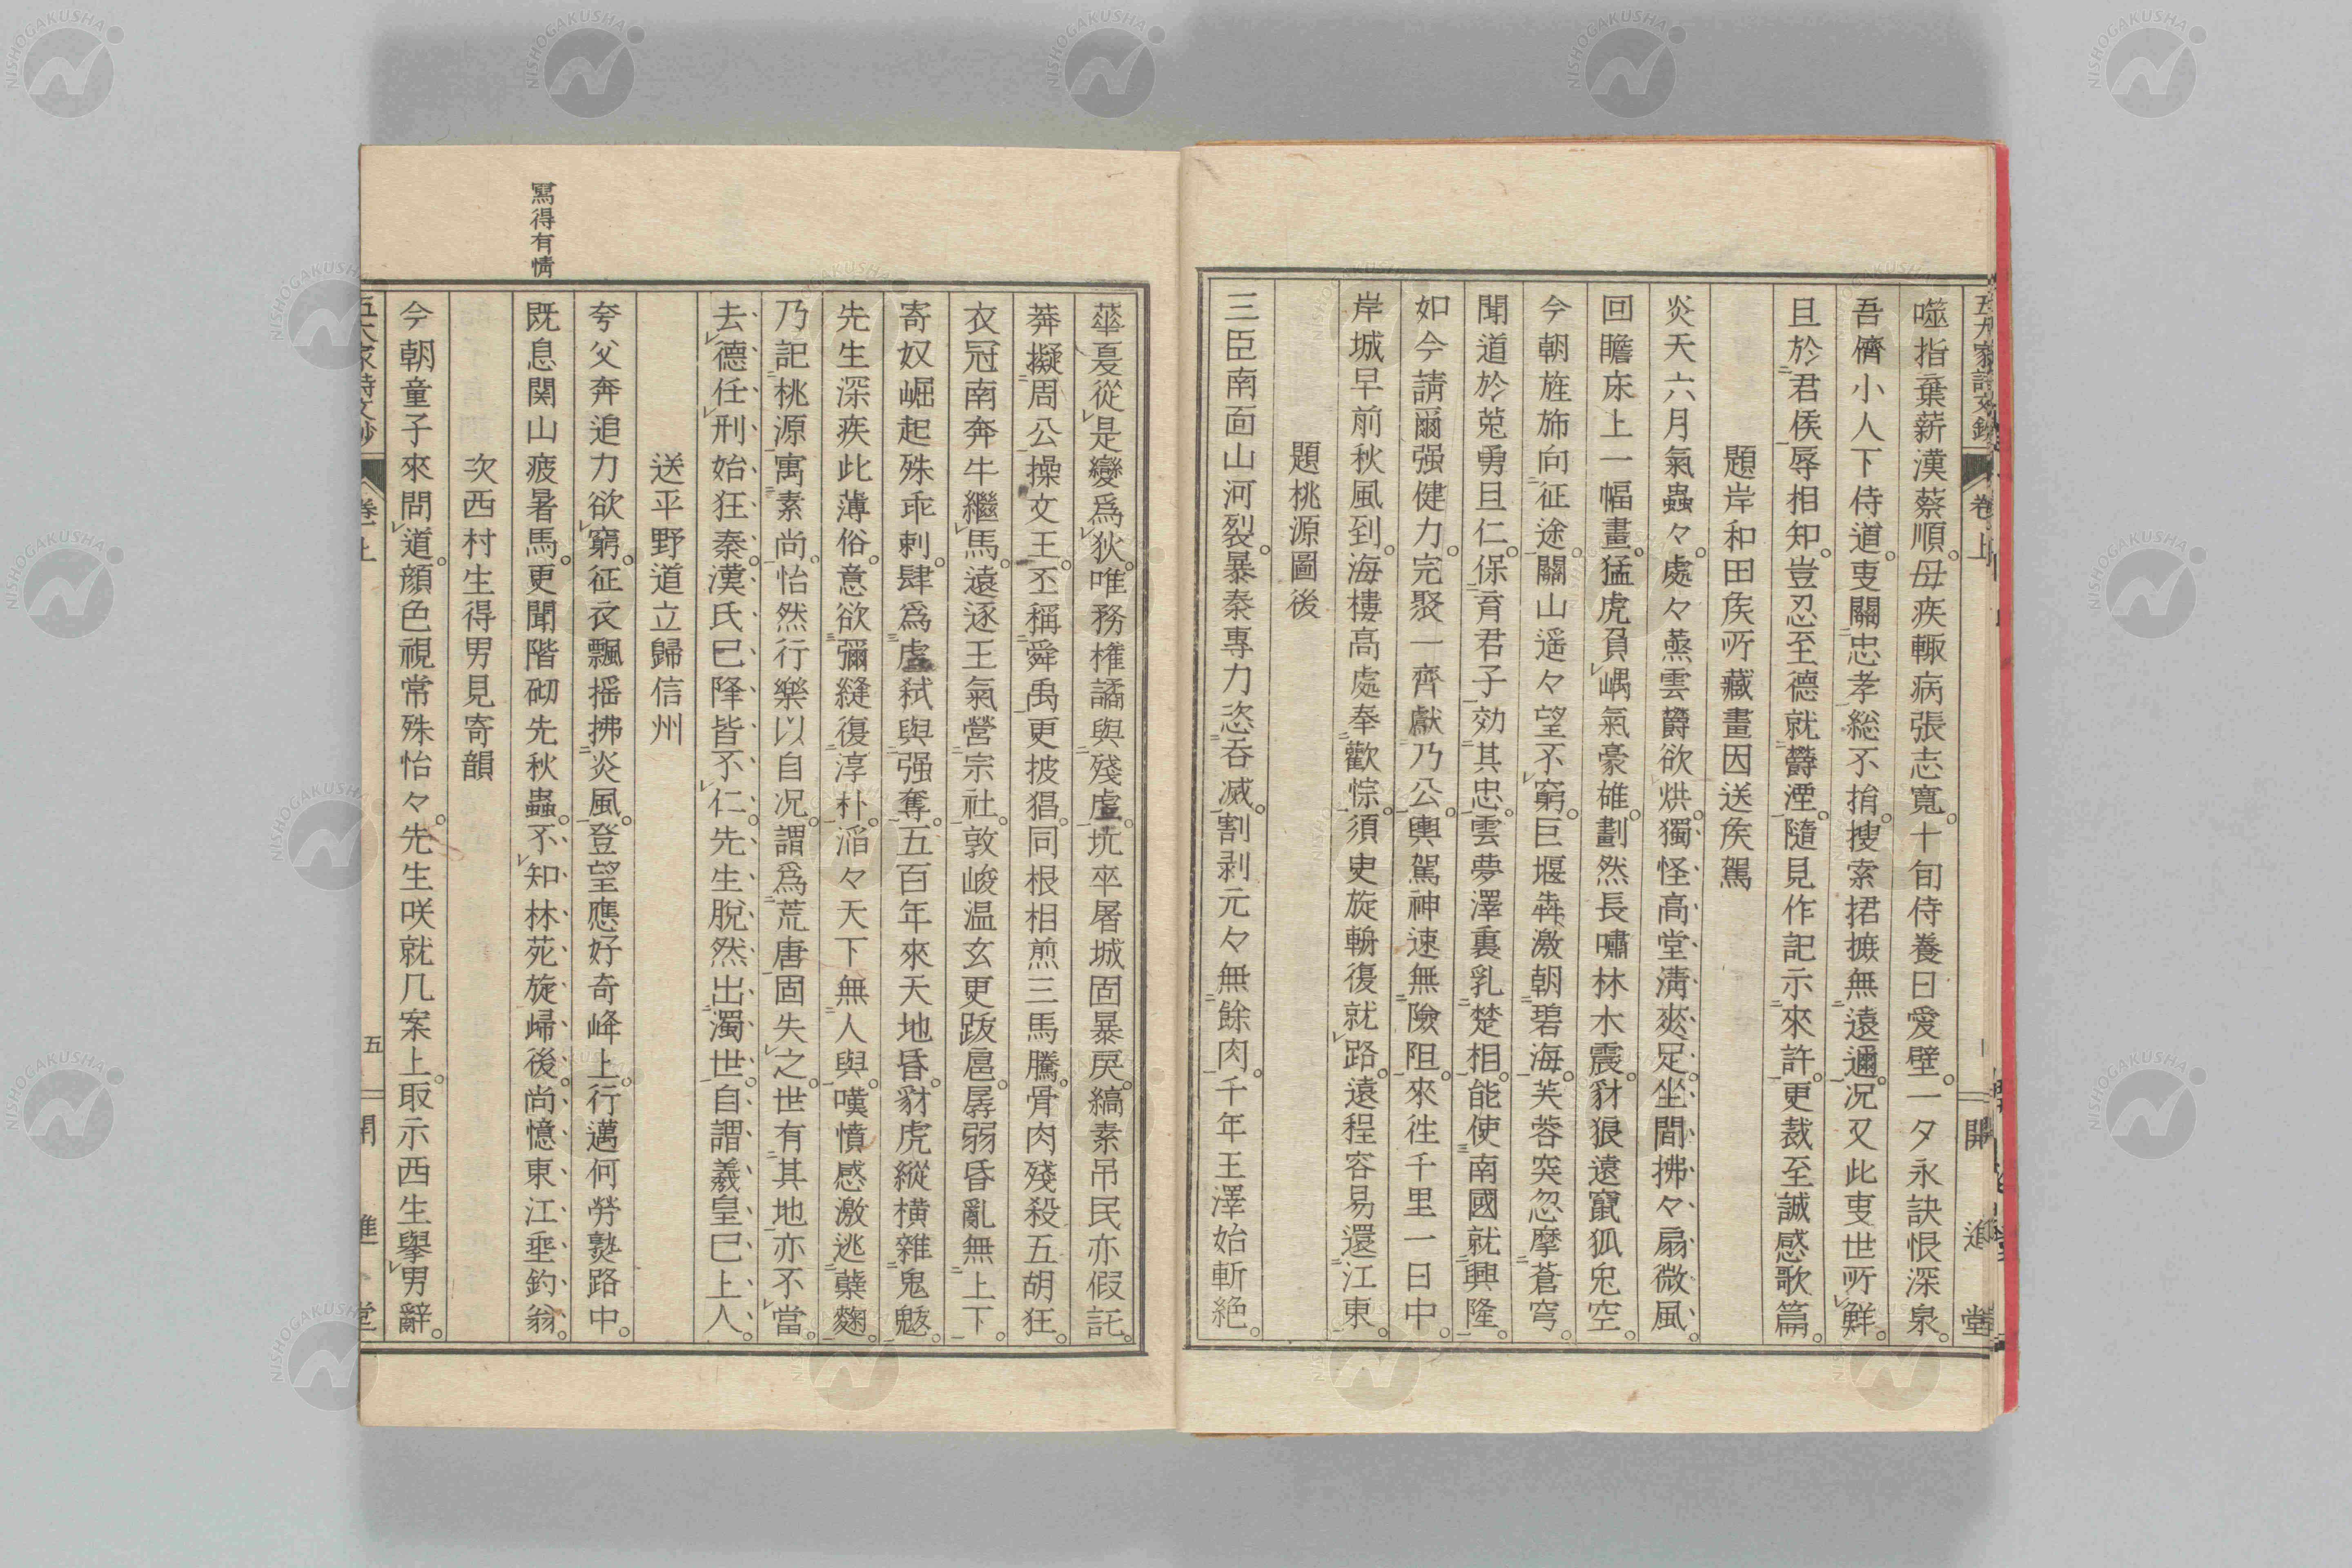 五大家詩文鈔 卷上 開進堂
噬指棄薪漢蔡順。母疾輙病張志寬。十旬侍養曰愛壁。一夕永訣恨深泉。
吾儕小人下侍道。叓關忠孝総不捎。搜索捃摭無遠邇。况又此叓世所鮮。
且於君矦辱相知。豈忍至德就欝湮。隨見作記示來許。更裁至誠感歌篇。
題岸和田矦所藏畫因送矦駕
炎天六月氣蟲々。處々蒸雲欝欲烘。獨怪高堂淸爽足。坐間拂々扇微風。
回瞻床上一幅畫。猛虎負嵎氣豪雄。劃然長嘯林木震。豺狼遠竄狐兔空。
今朝旌斾向征途。關山遥々望不窮。巨堰犇激朝碧海。芙蓉突忽摩蒼穹。
聞道於菟勇且仁。保育君子効其忠。雲夢澤裏乳楚相。能使南國就興隆。
如今請爾强健力。完聚一齊獻乃公。輿駕神速無險阻。來徃千里一日中。
岸城早前秋風到。海樓高處奉歡悰。須叓旋輈復就路。遠程容易還江東。
題桃源圖後
三臣南面山河裂。暴秦專力恣吞滅。割剥元々無餘肉。千年王澤始斬絶。
蕐夏從是變爲狄。唯務權譎與殘虐。坑卒屠城固暴戾。縞素吊民亦假託。
莽擬周公操文王。丕稱舜禹更披猖。同根相煎三馬騰。骨肉殘殺五胡狂。
衣冠南奔牛繼馬。遠逐王氣營宗社。敦峻温玄更跋扈。孱弱昏亂無上下。
寄奴崛起殊乖剌。肆爲虐弑與强奪。五百年來天地昏。豺虎縱横雜鬼魃。
先生深疾此薄俗。意欲彌縫復淳朴。滔々天下無人與。嘆憤感激逃蘖麴。
乃記桃源寓素尚。怡然行樂以自况。謂爲荒唐固失之。世有其地亦不當。
去德任刑始狂秦。漢氏巳降皆不仁。先生脫然出濁世。自謂羲皇巳上人。
送平野道立歸信州
夸父奔追力欲窮。征衣飄揺拂炎風。登望應好奇峰上。行邁何勞𤍠路中。
寫得有情
既息関山疲暑馬。更聞階砌先秋蟲。不知林苑旋歸後。尚憶東江垂釣翁。
次西村生得男見寄韻
今朝童子來問道。顔色視常殊怡々。先生咲就几案上。取示西生擧男辭。
五大家詩文鈔 卷上 五 開進堂